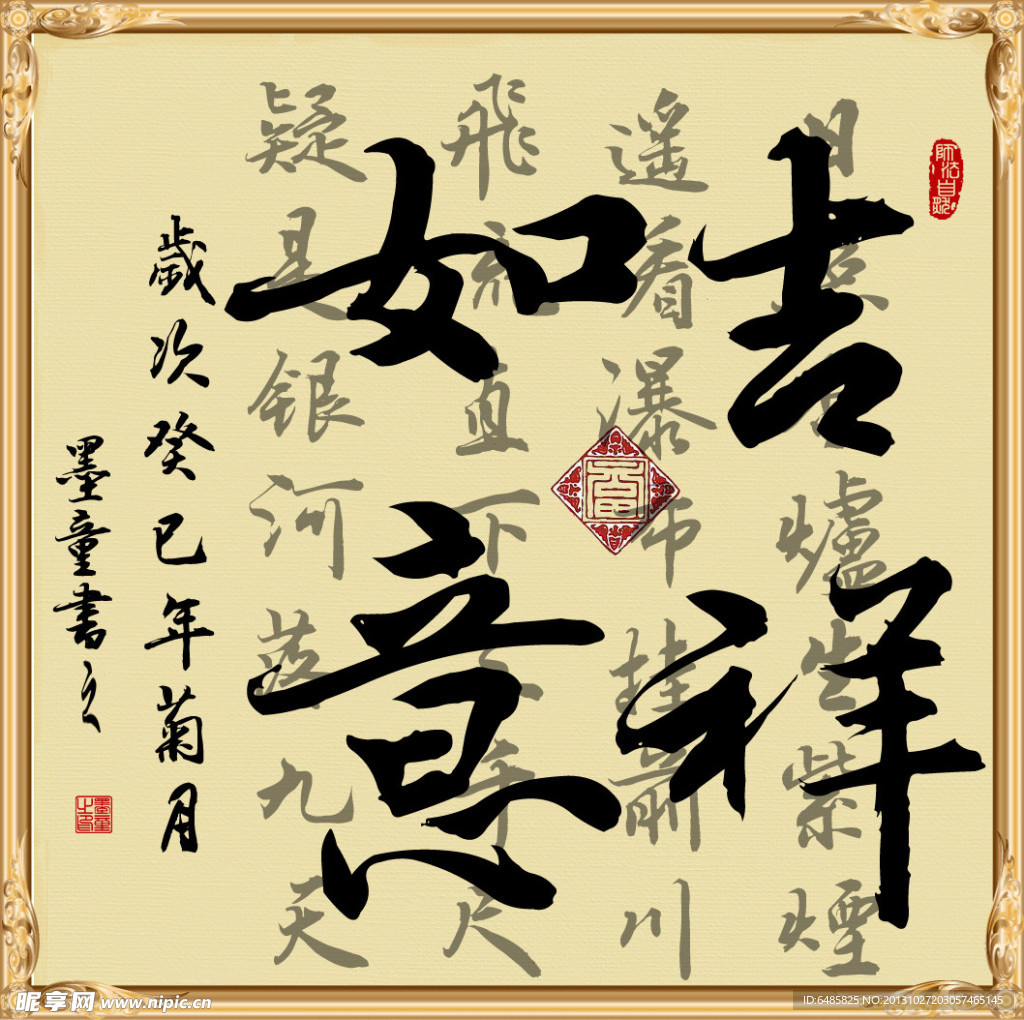 吉祥
如意
日照香爐生紫煙
遥看瀑布挂前川
飛流直下三千尺
疑是銀河落九天
歲次癸巳年菊月
墨童書之
师法自然
墨童之印
昵享网 www.nipic.cn
ID:6485825 NO.20131027203057465145